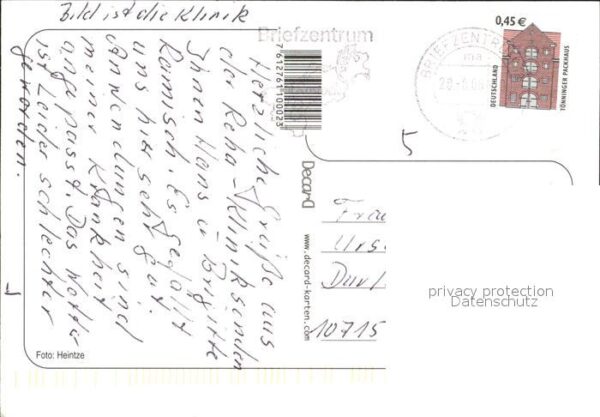 Bild ist die Klinik
Herzliche Grüße aus
der Reha-Klinik senden
Ihnen Hans u. Brigitte
Es gefällt
uns hier sehr gut.
Anwendungen sind
meiner Krankheit
angepasst. Das Wetter
ist leider schlechter
geworden.
Foto: Heintze
Briefzentrum
7612761100023
Decard
www.decard-karten.com
BRIEFZENTRUM
ma
0,45 €
DEUTSCHLAND
TÖNNINGER PACKHAUS
5
Frau
10715
privacy protection
Datenschutz